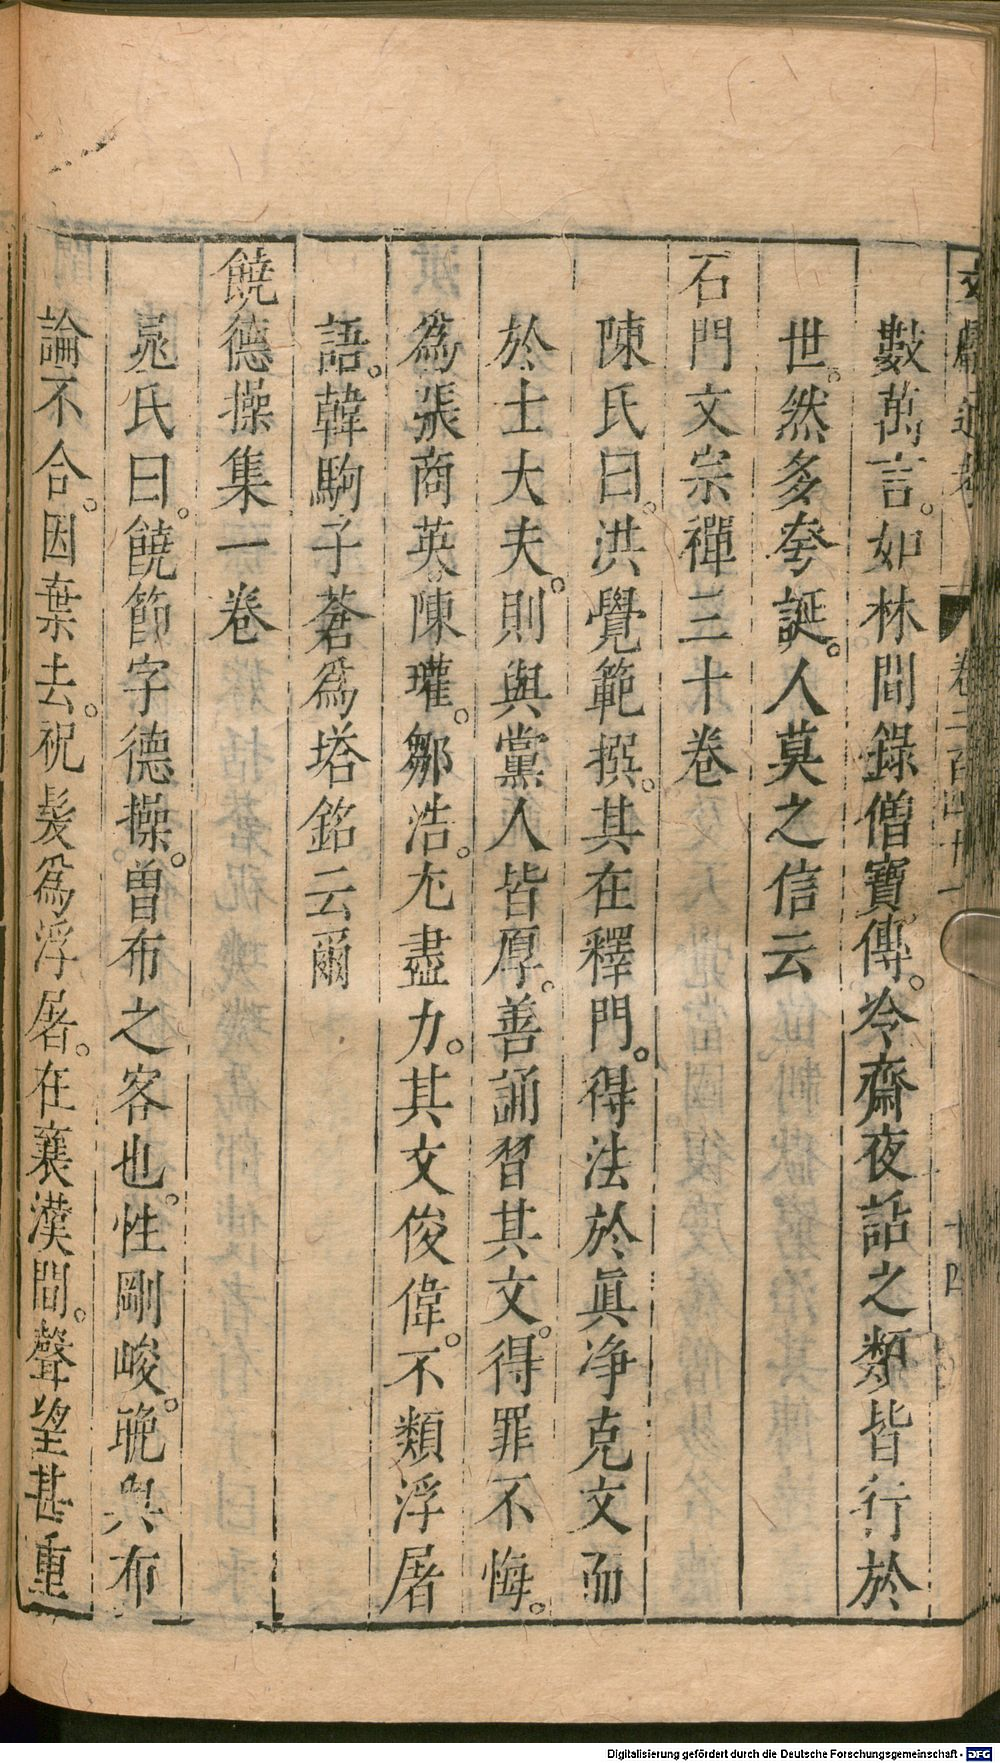 數萬言。如林間錄僧寶傳。冷齋夜話之類皆行於
世。然多夸誕。人莫之信云
石門文宗禪三十卷
陳氏曰。洪覺範撰。其在釋門。得法於眞净克文而
於士大夫。則與黨人皆厚。善誦習其文。得罪不悔。
爲張商英。陳瓘。鄒浩。尤盡力。其文俊偉。不類浮屠
語。韓駒子蒼爲塔銘云爾
饒德操集一卷
晁氏曰。饒節字德操。曾布之客也。性剛峻。晚與布
論不合。因棄去。祝髮爲浮屠。在襄漢間。聲望甚重
卷三百四十
十四
Digitalisierung gefördert durch die Deutsche Forschungsgemeinschaft - DFG